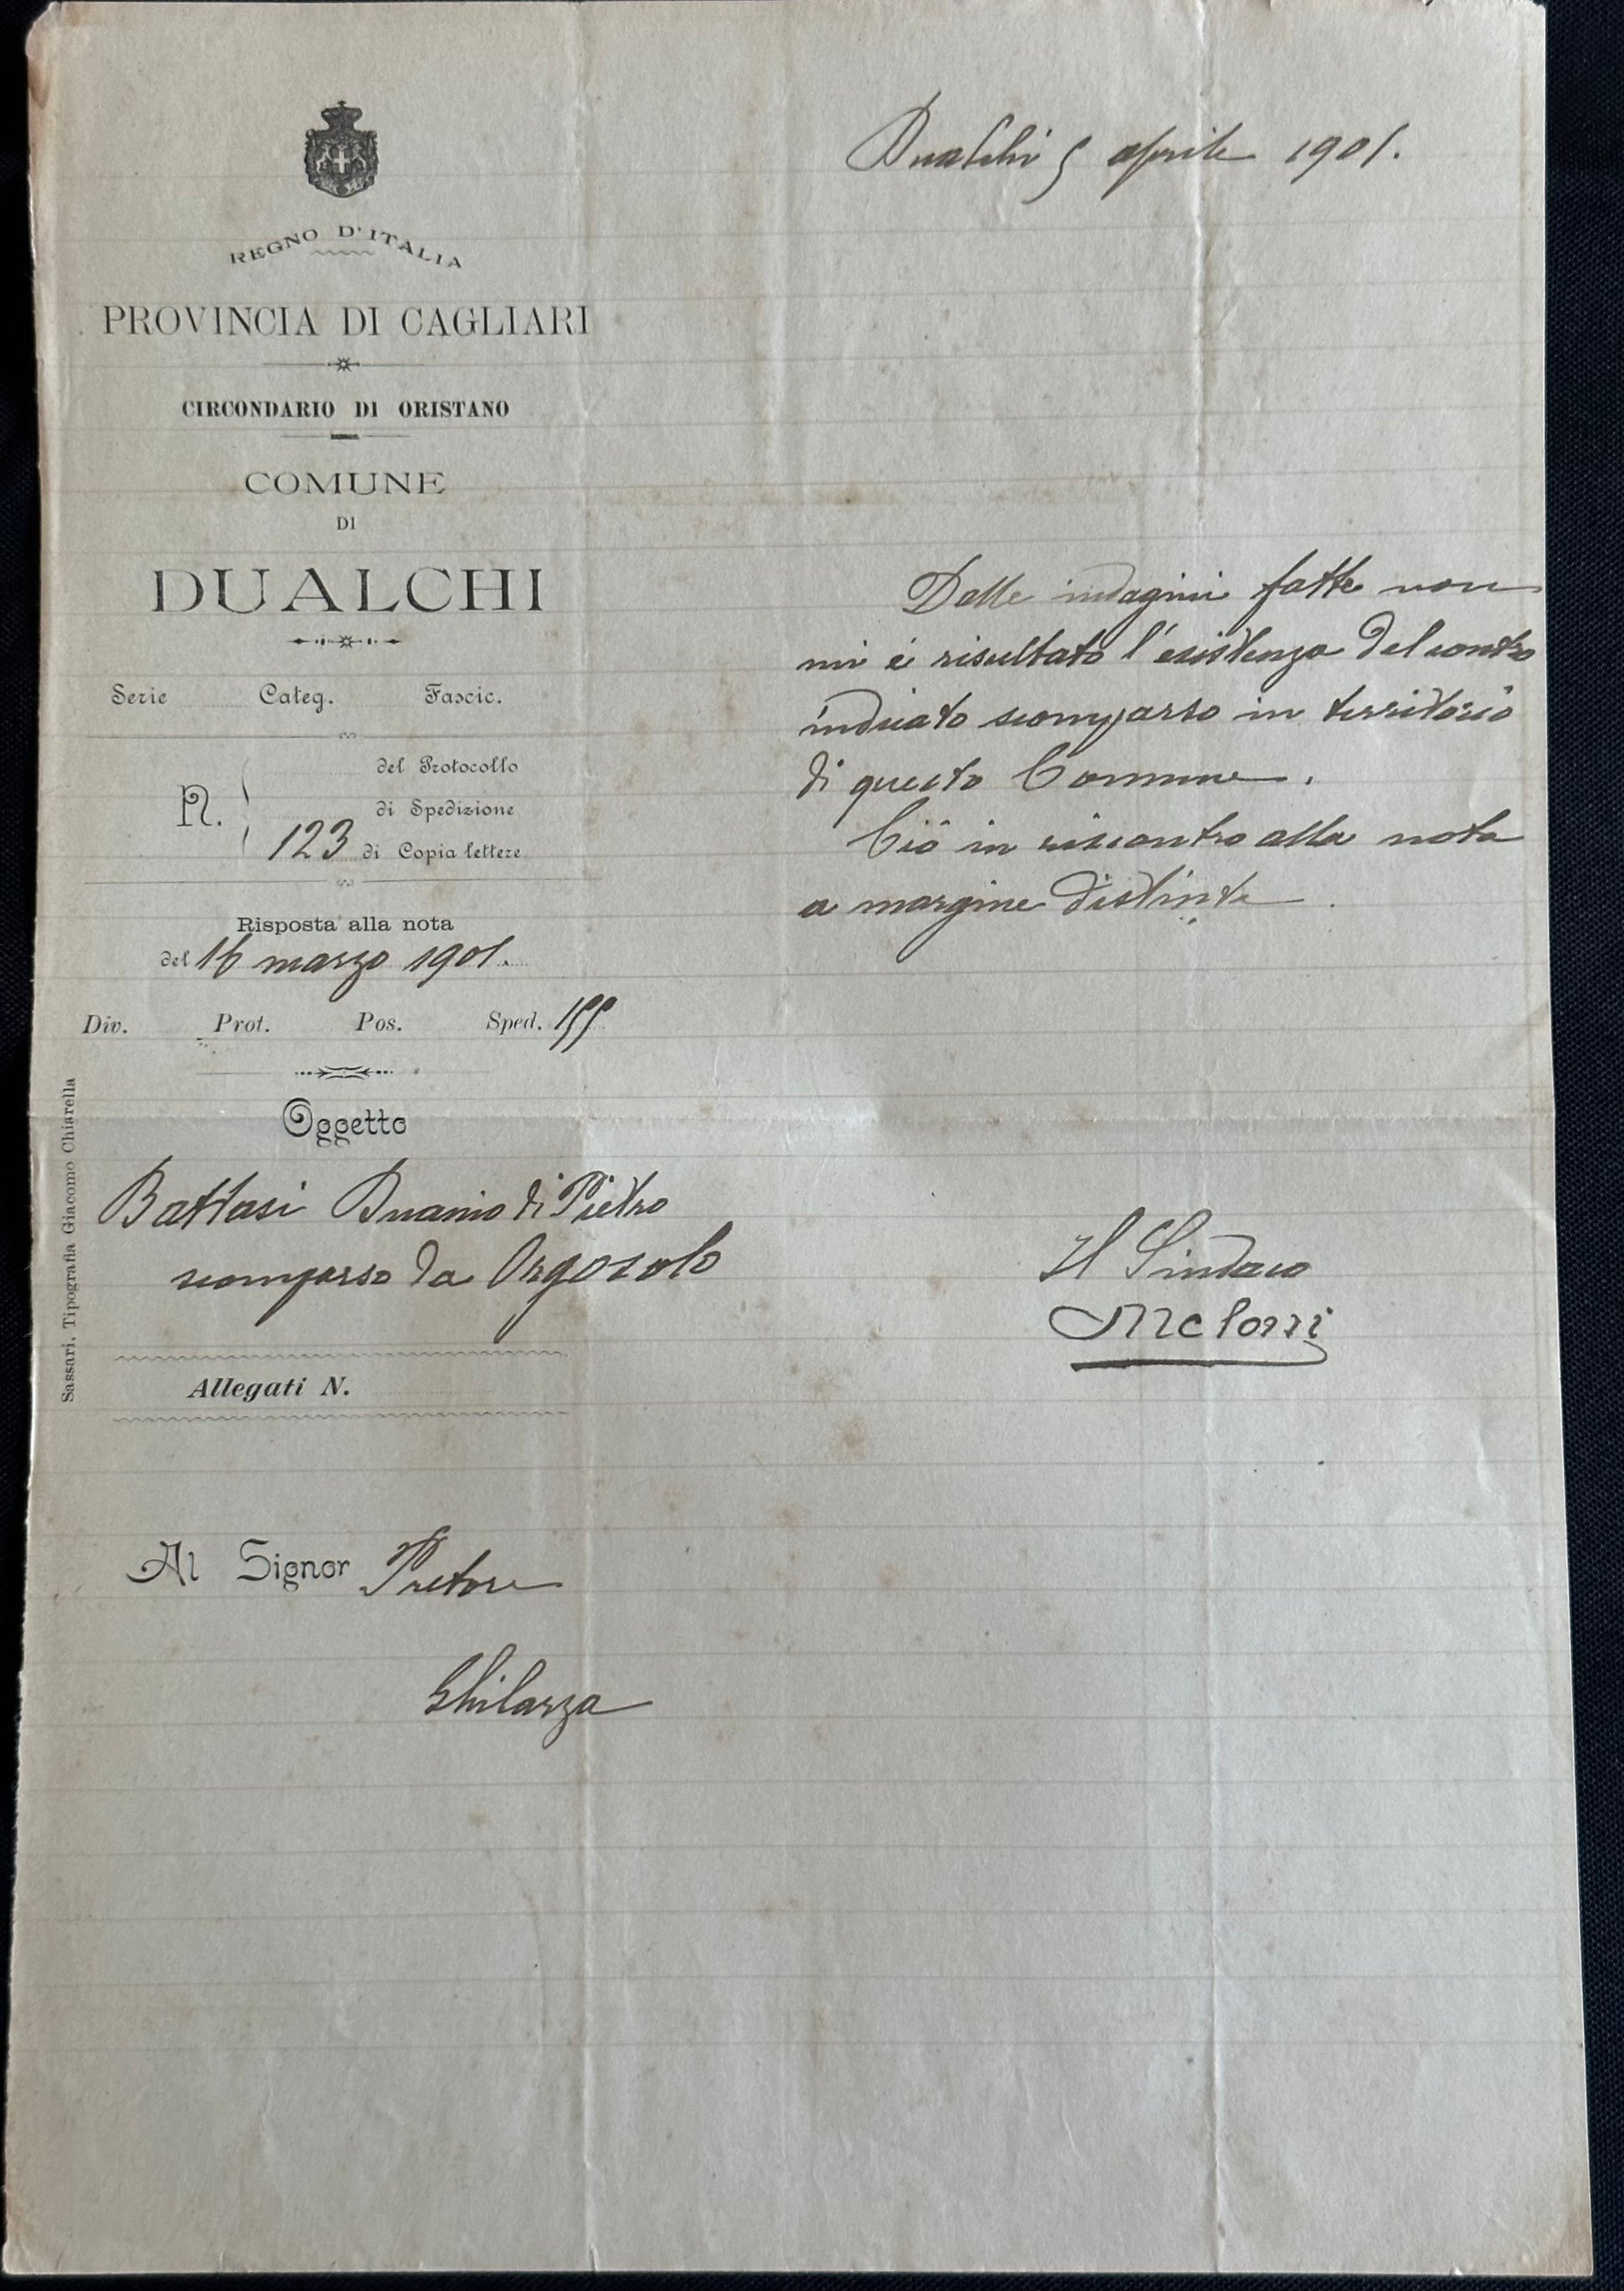 REGNO D'ITALIA
PROVINCIA DI CAGLIARI
CIRCONDARIO DI ORISTANO
COMUNE
DI
DUALCHI
Serie Categ. Fascic.
N.
del Protocollo
di Spedizione
123 di Copia lettere
Risposta alla nota
del 16 marzo 1901.
Div. Prot. Pos. Sped. 155
Oggetto
Battasi di Pietro
scomparso da Orgosolo
Allegati N.
Al Signor Pretore
Ghilarza
Sassari, Tipografia Giacomo Chiarella
Dualchi 5 aprile 1901.
Dalle indagini fatte non
mi é risultato l'esistenza del contro
indicato scomparso in territorio
di questo Comune.
Ciò in riscontro alla nota
a margine distinta.
Il Sindaco